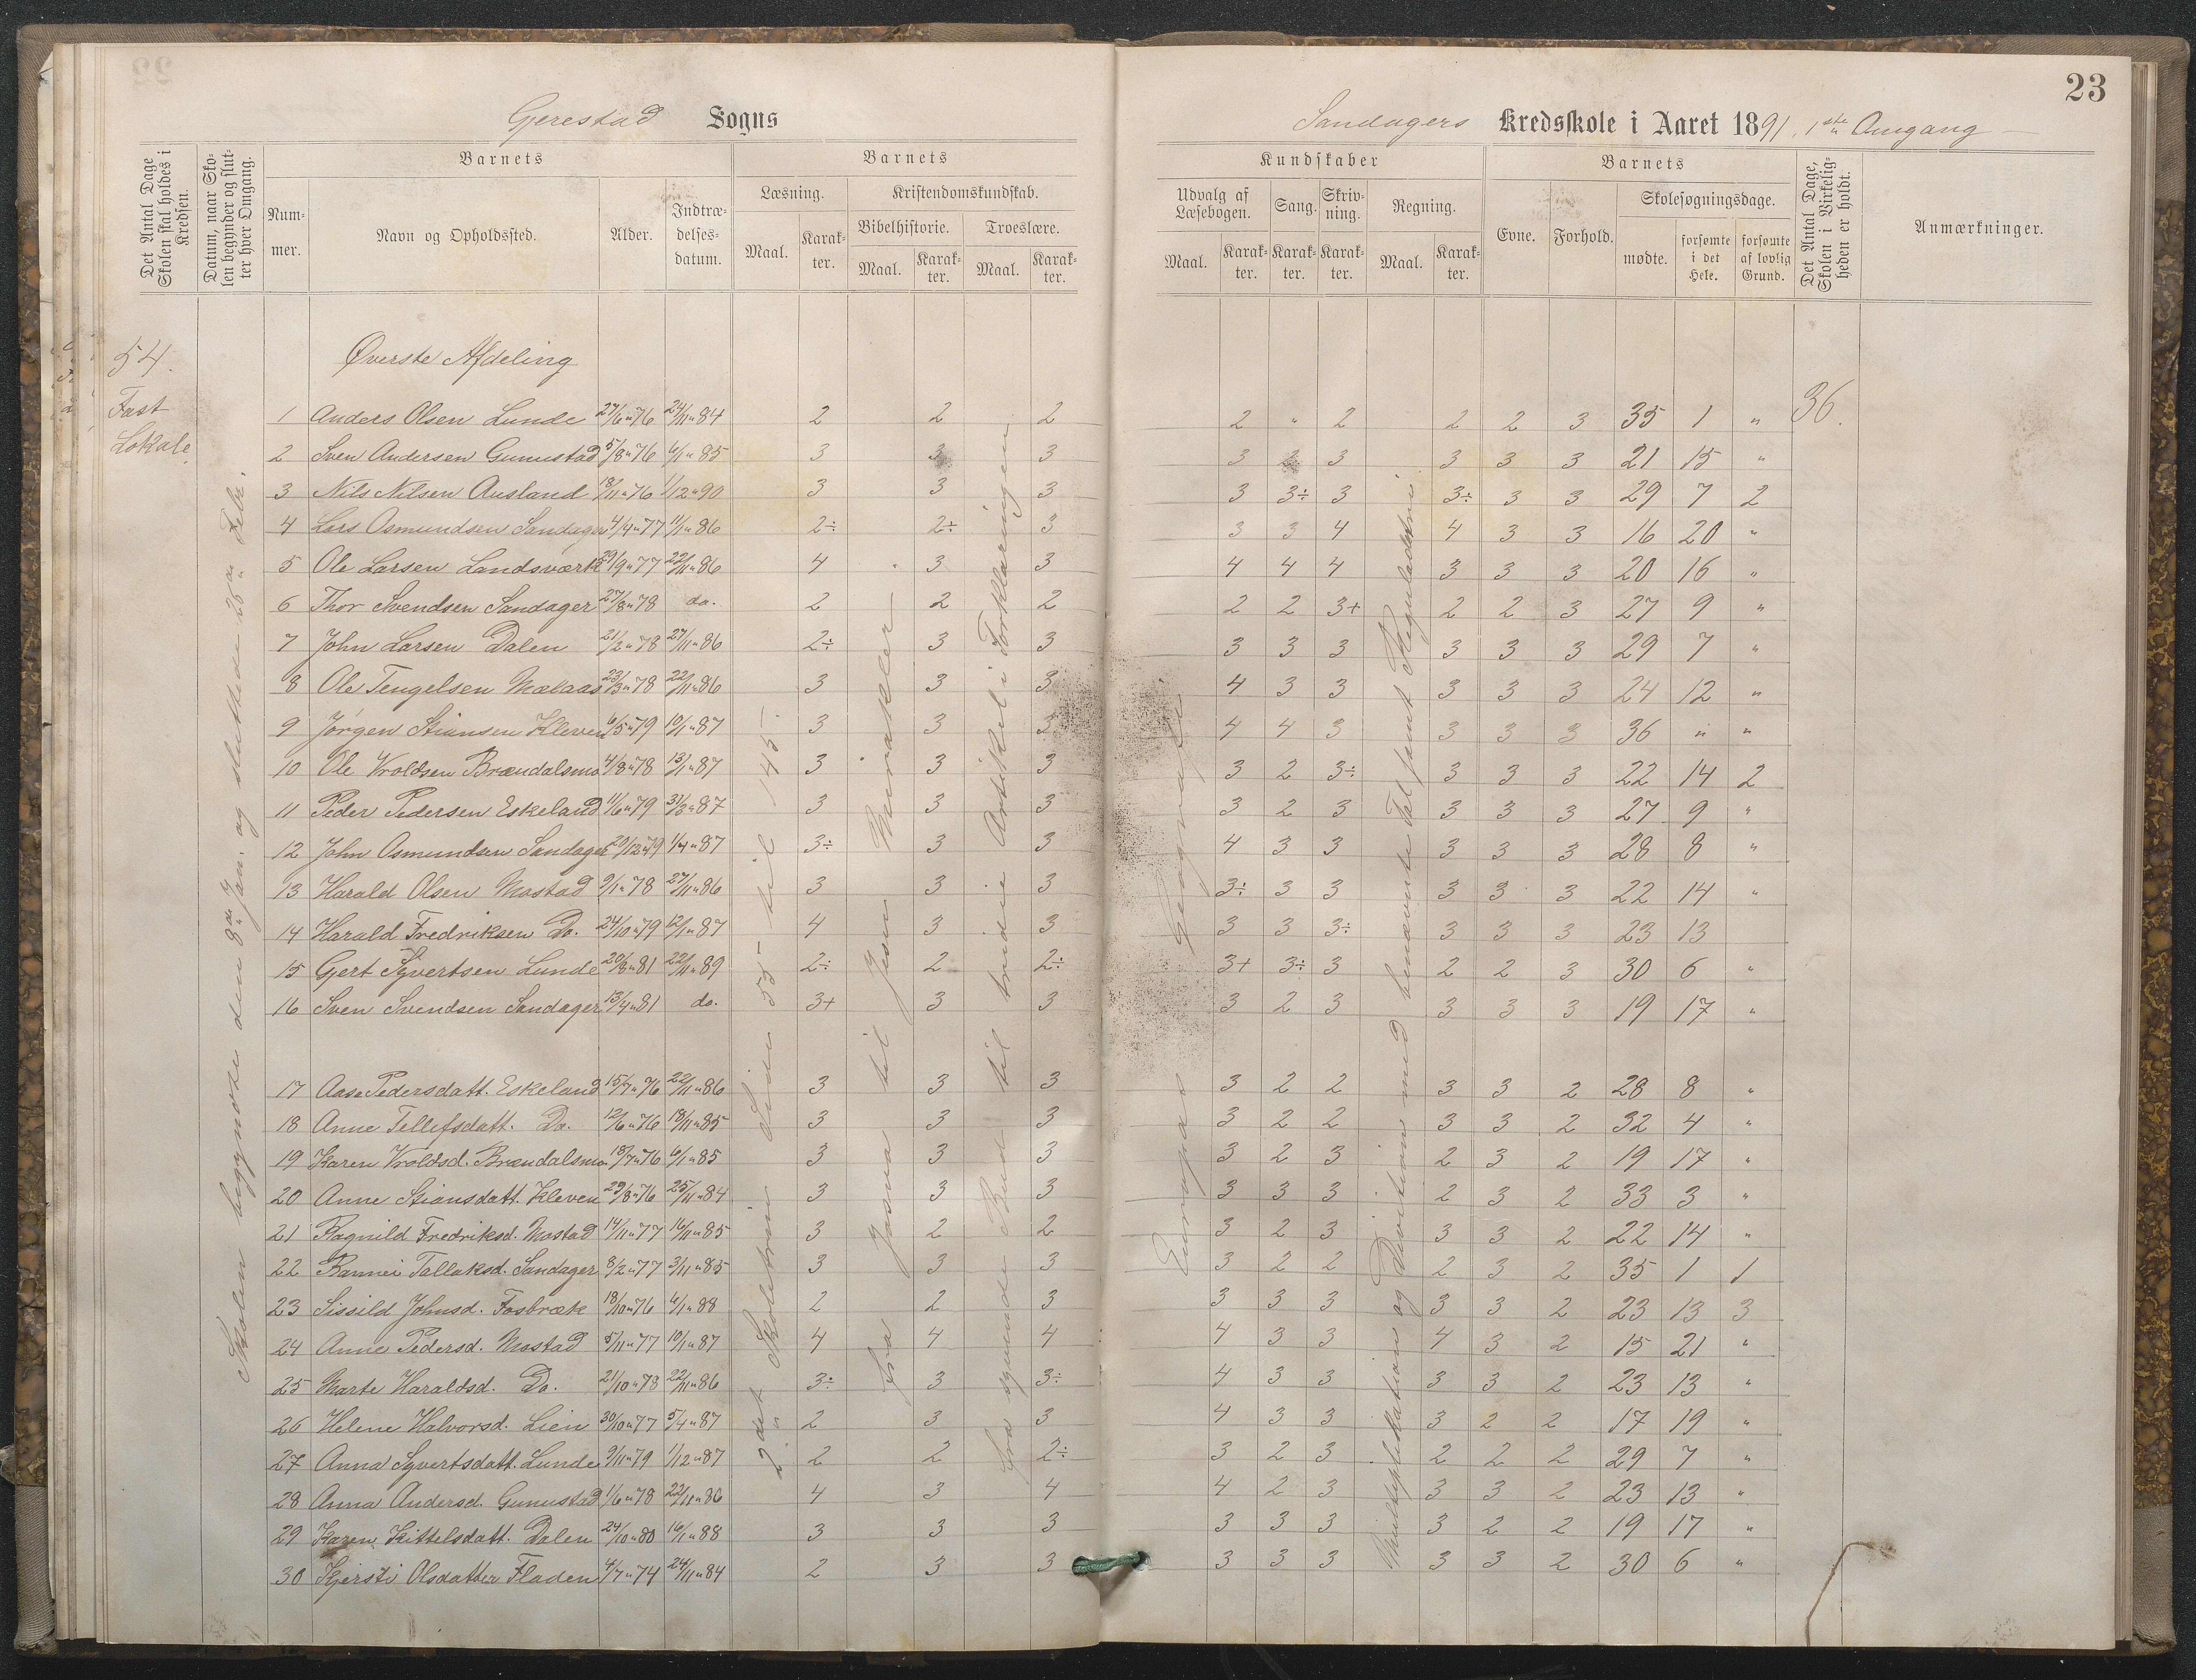 23
Gjerestad Sogns
Sandagers Kredsskole i Aaret 1891, 1ste Omgang
Det Antal Dage Skolen skal holdes i Kredsen.
Datum, naar Skolen begynder og slutter hver Omgang.
Barnets
Nummer.
Navn og Opholdssted.
Alder.
Indtrædelsesdatum.
Barnets
Læsning.
Maal.
Karakter.
Kristendomskundskab.
Bibelhistorie.
Maal.
Karakter.
Troeslære.
Maal.
Karakter.
Kundskaber
Udvalg af Læsebogen.
Maal.
Karakter.
Sang.
Karakter.
Skrivning.
Karakter.
Regning.
Maal.
Karakter.
Barnets
Evne.
Forhold.
Skolesøgningsdage.
mødte.
forsømte i det Hele.
forsømte af lovlig Grund.
Det Antal Dage, Skolen i Virkeligheden er holdt.
Anmærkninger.
54.
Fast
Lokale
Øverste Afdeling
36.
1 Anders Olsen Lunde 27/6 " 76 24/11 " 84 2 2 2 2 " 2 2 2 3 35 1 "
2 Sven Andersen Gunnustad 5/8 " 76 6/1 " 85 3 3 3 3 2 3 3 3 3 21 15 "
3 Nils Nilsen Ausland 18/11 " 76 1/12 " 90 3 3 3 3 3÷ 3 3÷ 3 3 29 7 2
4 Lars Osmundsen Sandager 4/4 " 77 11/1 " 86 2÷ 2÷ 3 3 3 4 4 3 3 16 20 "
5 Ole Larsen Landsværk 29/9 " 77 22/11 " 86 4 3 3 4 4 4 3 3 3 20 16 "
6 Thor Svendsen Sandager 27/8 " 78 do. 2 2 2 2 2 3+ 2 2 3 27 9 "
7 John Larsen Dalen 21/2 " 78 27/11 " 86 2÷ 3 3 3 3 3 3 3 3 29 7 "
8 Ole Tengelsen Mælaas 23/3 " 78 22/11 " 86 3 3 3 4 3 3 3 3 3 24 12 "
9 Jørgen Stiansen Kleven 6/5 " 79 10/1 " 87 3 3 3 4 4 3 3 3 3 36 " "
10 Ole Vroldsen Brændalsmo 4/8 " 78 13/1 " 87 3 3 3 3 2 3÷ 3 3 3 22 14 2
11 Peder Pedersen Eskeland 11/6 " 79 31/3 " 87 3 3 3 3 2 3 3 3 3 27 9 "
12 John Osmundsen Sandager 20/12 " 79 1/4 " 87 3÷ 3 3 4 3 3 3 3 3 28 8 "
13 Harald Olsen Mostad 9/1 " 78 27/11 " 86 3 3 3 3÷ 3 3 3 3 3 22 14 "
14 Harald Fredriksen Do. 24/10 " 79 12/1 " 87 4 3 3 3 3 3÷ 3 3 3 23 13
15 Gert Syvertsen Lunde 20/8 " 81 22/11 " 89 2÷ 2 2÷ 3+ 3÷ 3 2 2 3 30 6 "
16 Sven Svendsen Sandager 13/4 " 81 do. 3+ 3 3 3 2 3 3 3 3 19 17 "
17 Aase Pedersdatt. Eskeland 15/7 " 76 22/11 " 86 3 3 3 3 2 2 3 3 2 28 8 "
18 Anne Tellefsdatt. Do. 12/6 " 76 18/11 " 85 3 3 3 3 2 2 3 3 2 32 4 "
19 Karen Vroldsd. Brændalsmo 18/7 " 76 6/1 " 85 3 3 3 3 2 3 2 3 2 19 17 "
20 Anne Stiansdatt. Kleven 29/8 " 76 25/11 " 84 3 3 3 3 3 3 2 3 2 33 3 "
21 Ragnild Fredriksd. Mostad 14/11 " 77 16/11 " 85 3 2 2 3 2 3 3 3 2 22 14 "
22 Rannei Tallaksd. Sandager 8/2 " 77 3/11 " 85 3 3 3 3 2 2 2 3 2 35 1 1
23 Sissild Johnsd. Fosbræk 18/10 " 76 6/1 " 88 2 2 3 3 3 3 3 3 2 23 13 3
24 Anne Pedersd. Mostad 5/11 " 77 10/1 " 87 4 4 4 4 3 3 4 3 2 15 21 "
25 Marte Haraldsd. Do. 21/10 " 78 22/11 " 86 3÷ 3 3÷ 4 3 3 3 3 2 23 13 "
26 Helene Halvorsd. Lien 30/10 " 77 5/4 " 87 2 3 3 4 3 3 3 2 2 17 19 "
27 Anna Syvertsdatt. Lunde 9/11 " 79 1/12 " 87 2 2 2÷ 3 2 3 2 2 2 29 7 "
28 Anna Andersd. Gunnustad 1/6 " 78 22/11 " 86 4 3 4 4 2 3 3 3 2 23 13 "
29 Karen Kittelsdatt. Dalen 24/10 " 80 16/1 " 88 3 3 3 3 3 3 3 2 2 19 17 "
30 Kjersti Olsdatter Fladen 4/7 " 74 24/11 " 84 2 3 3 3 3 3 3 3 2 30 6 "
Skolen begyndte den 8de Jan. og sluttede 25de Febr.
2det Skoletrin Side 55 til 145.
Fra Josva til Jesu Mirakler
Fra syvende Bud til tredie Artikel i Forklaringen
Europa
Multyplikation og Division med benævnte Tal samt Reguladetri